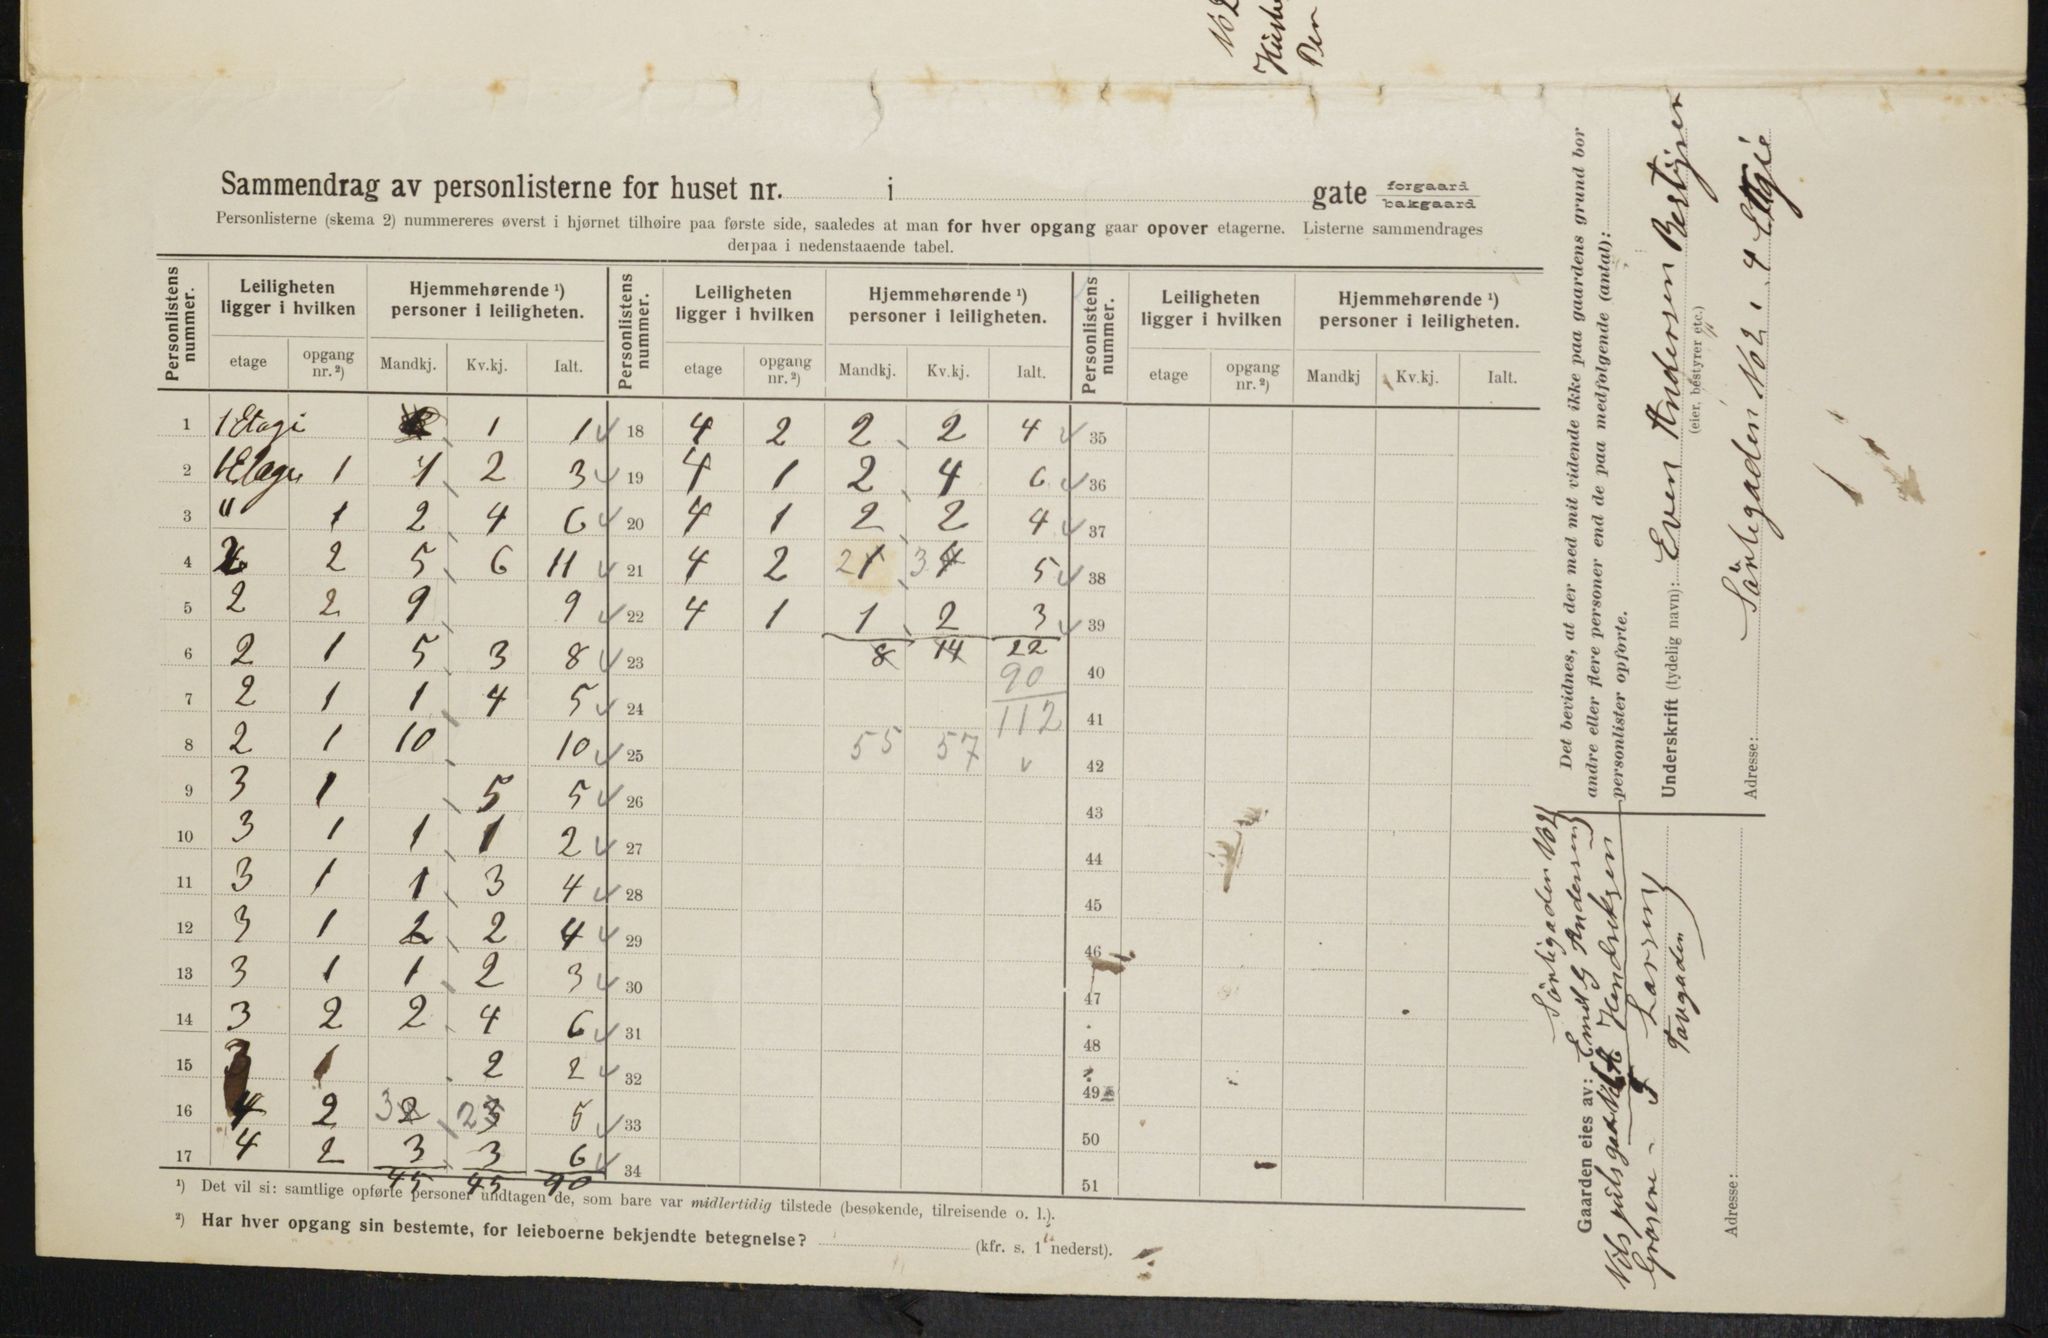 No 2
Sammendrag av personlisterne for huset nr. i gate forgaard bakgaard
Personlisterne (skema 2) nummereres øverst i hjørnet tilhøire paa første side, saaledes at man for hver opgang gaar opover etagerne. Listerne sammendrages
derpaa i nedenstaaende tabel.
Personlistens nummer. Leiligheten ligger i hvilken Hjemmehørende ¹) personer i leiligheten. Personlistens nummer. Leiligheten ligger i hvilken Hjemmehørende ¹) personer i leiligheten. Personlistens nummer. Leiligheten ligger i hvilken Hjemmehørende ¹) personer i leiligheten.
etage opgang nr. ²) Mandkj. Kv.kj. Ialt. etage opgang nr. ²) Mandkj. Kv.kj. Ialt. etage opgang nr. ²) Mandkj Kv.kj. Ialt.
1 1 Etagi 1 1 18 4 2 2 2 4 35
2 1 Etage 1 1 2 3 19 4 1 2 4 6 36
3 " 1 2 4 6 20 4 1 2 2 4 37
4 2 2 5 6 11 21 4 2 2 1 3 4 5 38
5 2 2 9 9 22 4 1 1 2 3 39
6 2 1 5 3 8 23 8 14 22
7 2 1 1 4 5 24 90 40
8 2 1 10 10 25 55 57 112 41
9 3 1 5 5 26 42
10 3 1 1 1 2 27 43
11 3 1 1 3 4 28 44
12 3 1 2 2 4 29 45
13 3 1 1 2 3 30 46
14 3 2 2 4 6 31 47
15 3 1 2 2 32 48
16 4 2 3 2 2 3 5 33 49
17 4 2 3 3 6 34 50
45 45 90 51
¹) Det vil si: samtlige opførte personer undtagen de, som bare var midlertidig tilstede (besøkende, tilreisende o. l.).
²) Har hver opgang sin bestemte, for leieboerne bekjendte betegnelse? (kfr. s. 1 nederst).
Det bevidnes, at der med mit vidende ikke paa gaardens grund bor
andre eller flere personer end de paa medfølgende (antal):
personlister opførte.
Underskrift (tydelig navn): Even Andersen Bestyrer
(eier, bestyrer etc.)
Adresse: Sörligaden No 2 i 4 Etagie
Sörligaden No 2
Gaarden eies av: Emil G Andersen
Hendreksen
Larsen
Tøvgaden
Adresse: